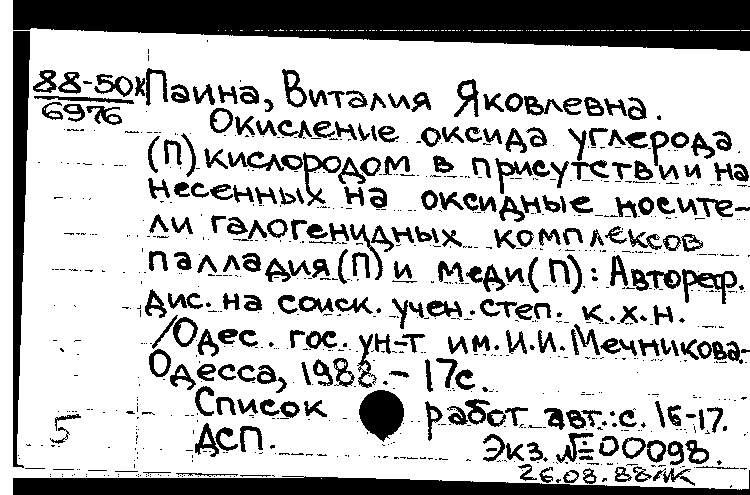 88-50к
6976
Паина, Виталия Яковлевна.
Окисление оксида углерода
(П) кислородом в присутствии на
несенных на оксидные носите-
ли галогенидных комплексов
палладия(П) и меди(П): Автореф.
дис. на соиск. учен. степ. к.х.н.
/Одес. гос. ун-т им. И.И. Мечникова.-
Одесса, 1988.- 17с.
Список работ авт.: с. 16-17.
ДСП. Экз. № 00098.
5
26.08.88